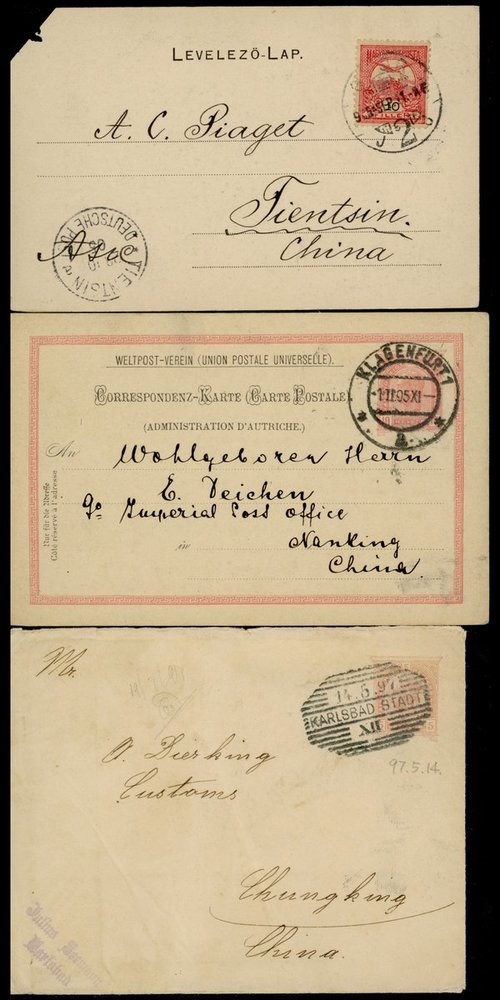 LEVELEZÖ-LAP.
FILLÉR
A. C. Piaget
Tientsin.
Asie
China
TIENTSIN
DEUTSCHE POST
WELTPOST-VEREIN (UNION POSTALE UNIVERSELLE).
KLAGENFURT 1
1.II.95.XI
a
Correspondenz-Karte (Carte Postale)
(ADMINISTRATION D'AUTRICHE.)
An
Wohlgeboren Herrn
E. Deichen
Imperial Post Office
in
Nanking
China.
Nur für die Adresse
Côté réservé à l'adresse
Mr.
14.5.97
KARLSBAD STADT
IX
97.5.14.
O. Dierking
Customs
Chungking
China.
Karlsbad.